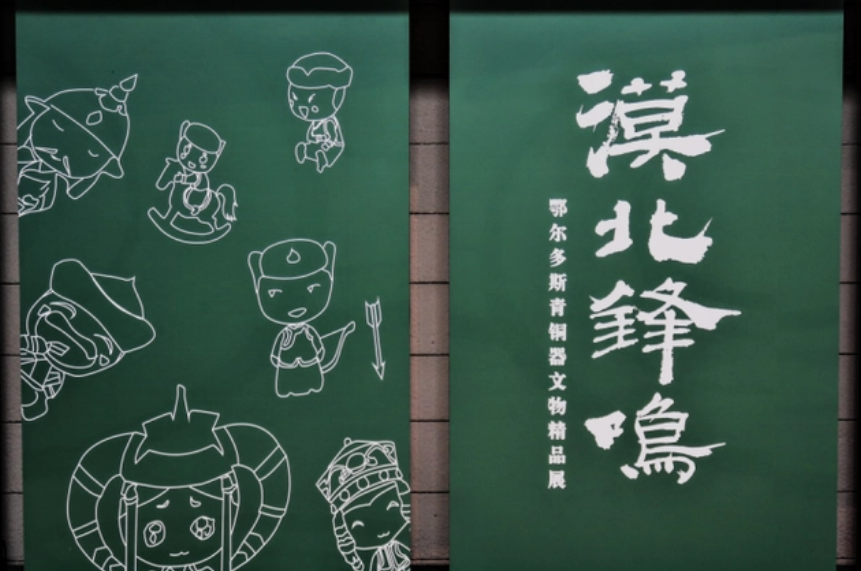 漠北鋒鳴
鄂尔多斯青铜器文物精品展